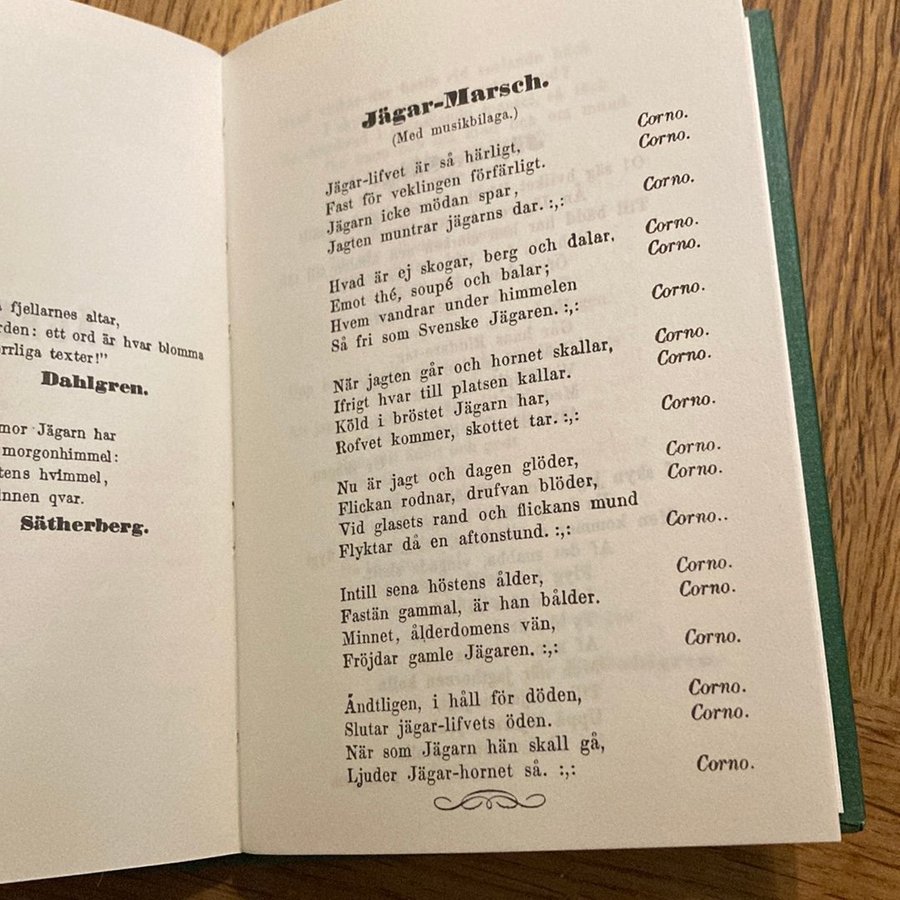 fjellarnes altar,
ett ord är hvar blomma
texter!"
Dahlgren.
mor Jägarn har
morgonhimmel:
hvimmel,
qvar.
Sätherberg.
Jägar-Marsch.
(Med musikbilaga.)
Jägar-lifvet är så härligt, Corno.
Fast för veklingen förfärligt. Corno.
Jägarn icke mödan spar,
Jagten muntrar jägarns dar. :,: Corno.
Hvad är ej skogar, berg och dalar, Corno.
Emot thé, soupé och balar; Corno.
Hvem vandrar under himmelen
Så fri som Svenske Jägaren. :,: Corno.
När jagten går och hornet skallar, Corno.
Ifrigt hvar till platsen kallar. Corno.
Köld i bröstet Jägarn har,
Rofvet kommer, skottet tar. :,: Corno.
Nu är jagt och dagen glöder, Corno.
Flickan rodnar, drufvan blöder, Corno.
Vid glasets rand och flickans mund
Flyktar då en aftonstund. :,: Corno..
Intill sena höstens ålder, Corno.
Fastän gammal, är han bålder. Corno.
Minnet, ålderdomens vän,
Fröjdar gamle Jägaren. :,: Corno.
Ändtligen, i håll för döden, Corno.
Slutar jägar-lifvets öden. Corno.
När som Jägarn hän skall gå,
Ljuder Jägar-hornet så. :,: Corno.